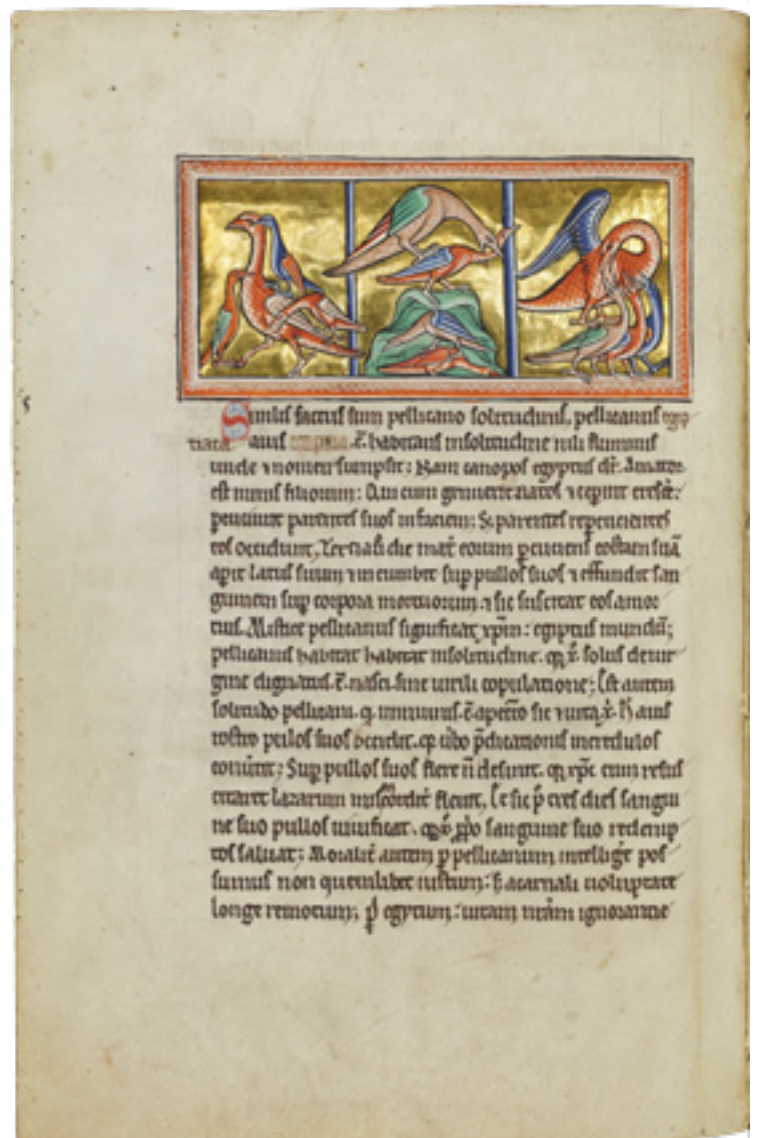 Similis factus sum pellicano solitudinis, pellicanus egip
tiaca auis ē habitans in solitudine nili fluminis
unde ⁊ nomen sumpsit: Nam canopos egyptus dr̄. Amator
est nimis filiorum: Qui cum genuerit natos ⁊ ceperint cresc̄e:
percutiunt parentes suos in faciem: Sꝫ parentes repercucientes
eos occidunt. Tercia ū die mat̄ eorum ꝑcuciens costam suā
aperit latus suum ⁊ incumbit sup pullos suos ⁊ effundit san
guinem suꝑ corpora mortuorum. ⁊ sic suscitat eos a mor
tuis. Mistice pellicanus significat xp̄m: egiptus mundū;
pellicanus habitat habitat in solitudine. qꝛ x̄. solus de uir
gine dignatus. ē. nasci sine uirili copulatione; Est autem
solitudo pellicani. q̄ inmunis. ē a pecc̄to sic ⁊ uita x̄. H̄ auis
rostro pullos suos occidit. qꝛ ūbo p̄dicationis incredulos
conūtit: Suꝑ pullos suos flere n̄ desinit. qꝛ xp̄c cum resus
citaret lazarum misc̄orditer fleuit. Et sic p̄ tres dies sangui
ne suo pullos uiuificat. qꝛ x̄ ꝓprio sanguine suo redemp
tos saluat: Moralit̄ autem ꝑ pellicanum intelliḡe pos
sumus non quemlibet iustum: sꝫ a carnali uoluptate
longe remotum; ꝑ egyptum: uitam nr̄am ignorantie